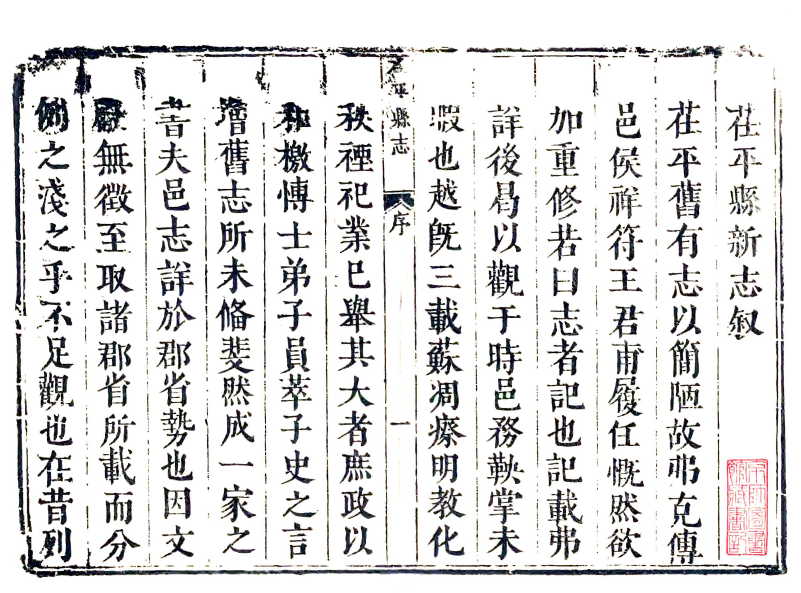 茌平縣新志叙
茌平舊有志以簡陋故弗克傳
邑侯祥符王君甫履任慨然欲
加重修若曰志者記也記載弗
詳後曷以觀于時邑務鞅掌未
暇也越旣三載蘇凋瘵明教化
平縣志 序 一
秩禋祀業已舉其大者庶政以
和檄愽士弟子員萃子史之言
增舊志所未俻斐然成一家之
書夫邑志詳於郡省勢也因文
獻無徵至取諸郡省所載而分
例之淺之乎不足觀也在昔列